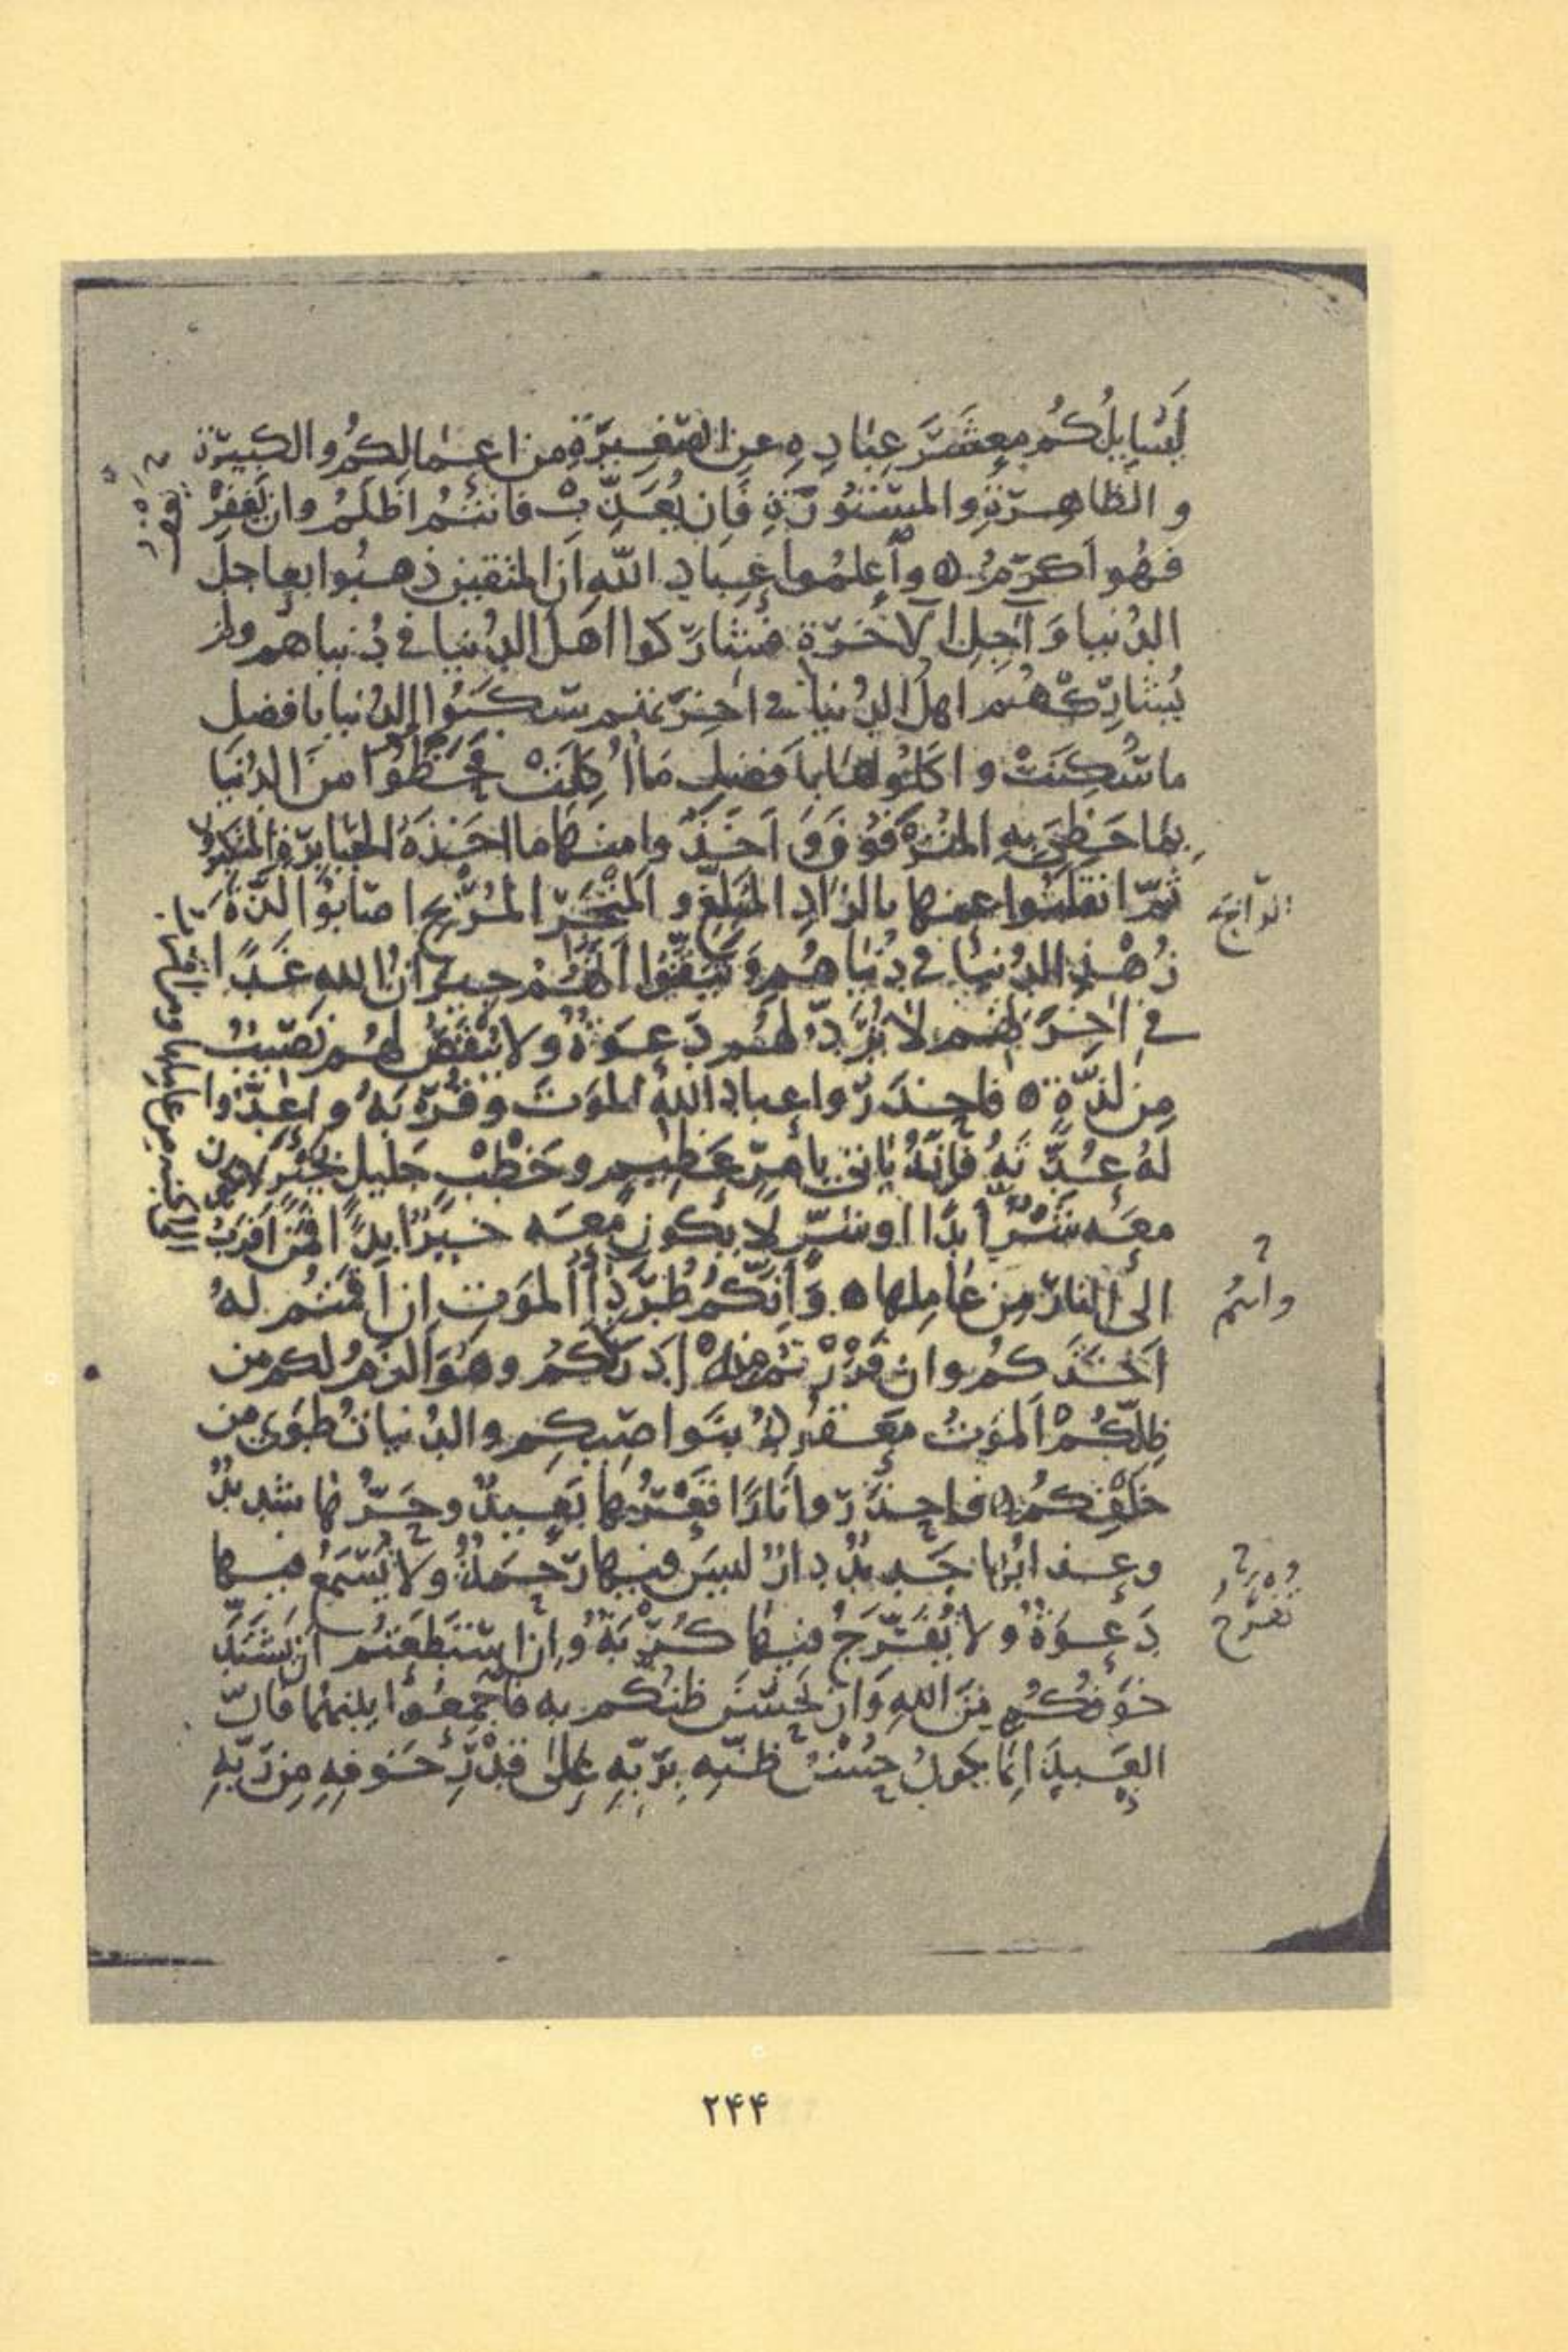 لَيُسَايِلُكُم مَعشَرَ عِبَادِهِ عن الصَّغِيرَةِ من اعمالكُم والكَبِيرَة
و الظاهِرَةِ والمَستُورَةِ فَاِن يُعَذِّبْ فانتُم اَظلَمُ وان يَغفِرْ
فَهُو اَكرَمُ ۞ واَعلمُوا عِبَادِ اللّهِ ان المتقين ذهبُوا بعاجل
الدنيا وَ آجِلِ الآخرَة فشارَكوا اهلَ الدُنيا في دُنياهم ولم
يُشارِكْهُم اهل الدُنيا في اخِرَتهم سَكَنُوا الدُنيا بافضل
ما سُكِنَتْ و اكلُوهَا بِاَفضلِ مَا اُكِلَتْ فَحَظُوا منَ الدُنيَا
بِمَا حَظِيَ بِهِ المُترَفُونَ وَ اَخَذُوا منها مَا اخَذَهُ الجَبَابِرَةِ المتكبرون
ثُمَّ انقلَبُوا عنها بالزادِ المُبَلِّغِ و المَتْجَرِ المُرْبِحِ اصَابُوا لذَّةَ
زُهْدِ الدُنيَا في دُنيَاهُم وَ تَيَقَّنُوا اَنَّهُمْ جيرَانُ اللهِ غَدًا
في اخِرَتِهِم لا تُرَدُّ لَهُم دَعوَةٌ ولا يُنْقَصُ لهُم نَصِيبُ
مِن لَذَّةٍ ۞ فَاحذَرُوا عبادَ اللهِ الموَتَ وَ قُرْبَهُ و اَعِدُّوا
لَهُ عُدَّتَهُ فَاِنَّهُ يَاتي بِاَمرٍ عَظِيمٍ و خَطْبٍ جَلِيلٍ بخَيْرٍ لا يكون
معَهُ شَرٌّ اَبَدًا او شَرٍّ لا يكون معَه خيرٌ ابدًا فمَن اقرَبُ
الى النارِ مِن عَامِلها ۞ وَ اَنتُم طُرَدَاءُ الموَتِ اِن اَقمتُم لهُ
اَخذَكُم وان فَرَرْتُم منهُ اَدرَكَكُم وهُوَ اَلزَمُ لكم من
ظِلِّكُمْ اَلموَتُ مَعقُودٌ بنَواصِيكُم والدُنيا تُطوَى من
خَلفِكُم ۞ فَاحذَرُوا نَارًا قَعْرُها بَعِيدٌ و حَرُّها شديدٌ
وعذابُها جَدِيدٌ دارٌ ليسَ فيها رَحمَةٌ ولا تُسْمَعُ فيها
دَعوَةٌ ولا يُفَرَّجُ فيها كُرْبَةٌ وَاِن استَطَعتُم ان يَشتَدَّ
خوَفكُم مِنَ اللهِ وَان يَحسُنَ ظنُّكُم بِهِ فَاجمَعُوا بينهُمَا فَاِنَّ
العَبدَ اِنّمَا يكونُ حُسْنُ ظَنِّه بِرَبِّهِ عَلى قَدْرِ خَوفِهِ مِن رَبِّهِ
الرابح
وانتم
تفرج
من اقرب الى الجنة من عاملها ومن اقرب
۲۴۴